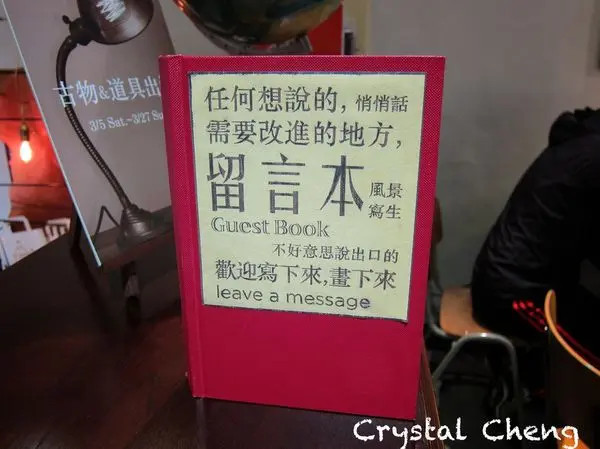 古物&道具出
3/5 Sat.~3/27 Su
任何想說的, 悄悄話
需要改進的地方,
留言本 風景寫生
Guest Book
不好意思說出口的
歡迎寫下來,畫下來
leave a message
Crystal Cheng